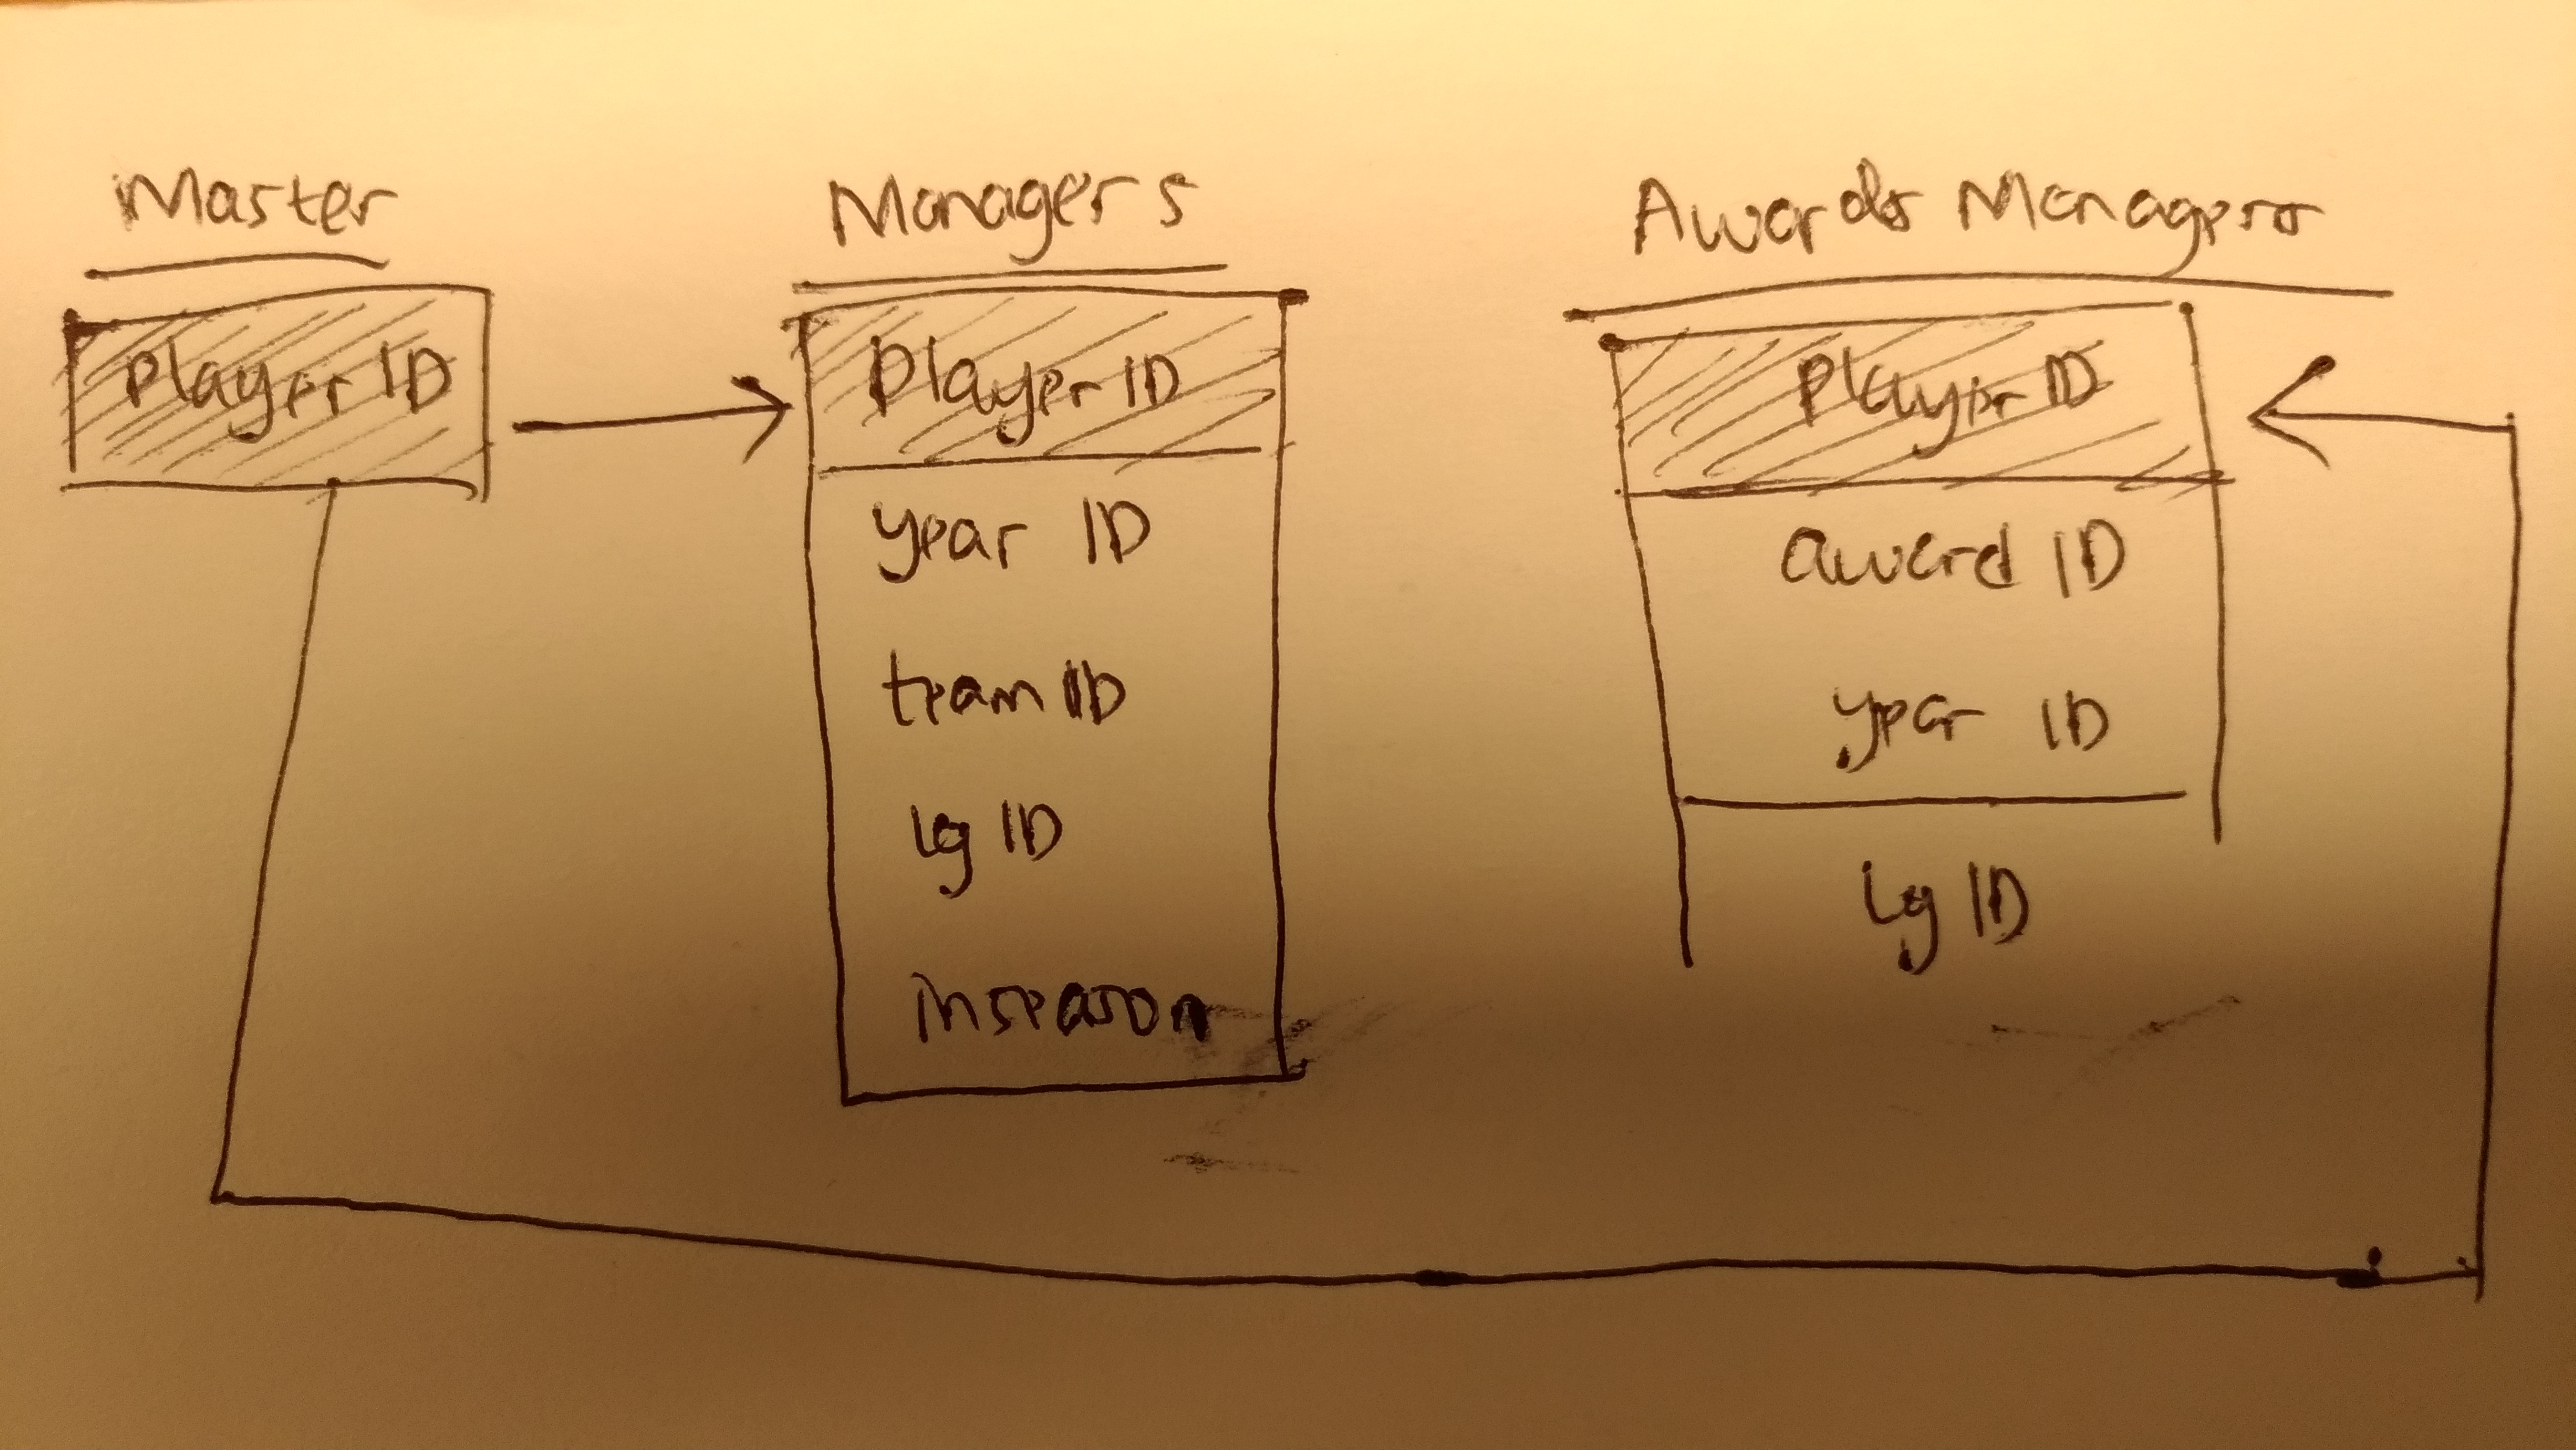 Master
Player ID
Managers
Player ID
year ID
team ID
lg ID
inseason
Awards Managers
Player ID
award ID
year ID
lg ID